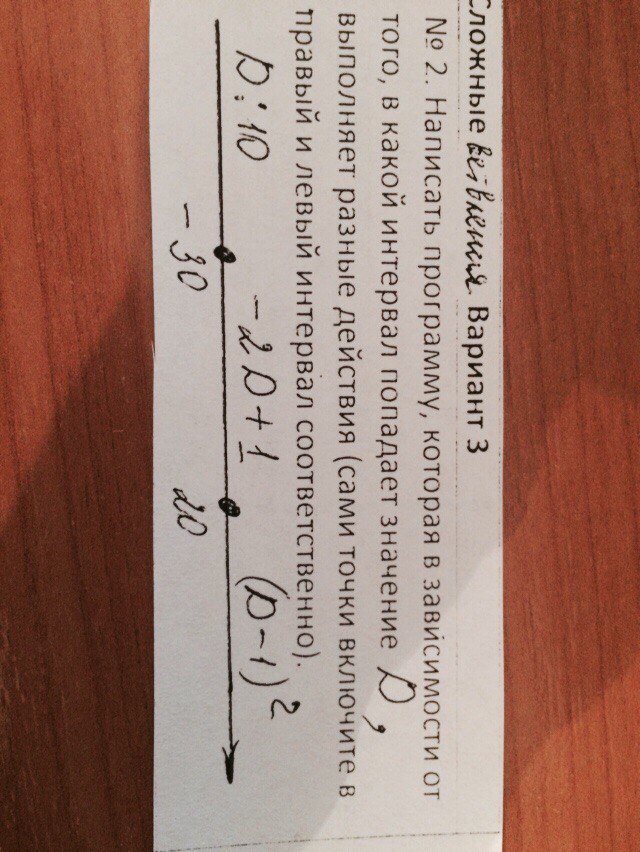 Сложные ветвления. Вариант 3
№ 2. Написать программу, которая в зависимости от
того, в какой интервал попадает значение D,
выполняет разные действия (сами точки включите в
правый и левый интервал соответственно).
D:10 -2D+1 (D-1)²
-30 20